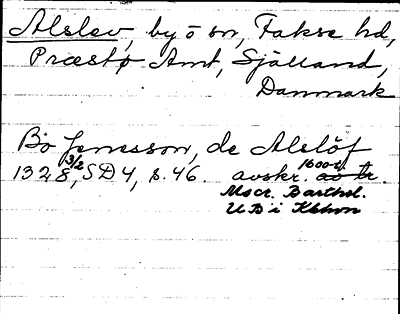 Alslev, by o sn, Fakse hd,
Præstø Amt, Sjælland,
Danmark
Bo Jensson, de Alsløf
1328 3/2, SD 4, s. 46. avskr. 1600-t.
Mscr. Barthol.
UB i Kbhvn